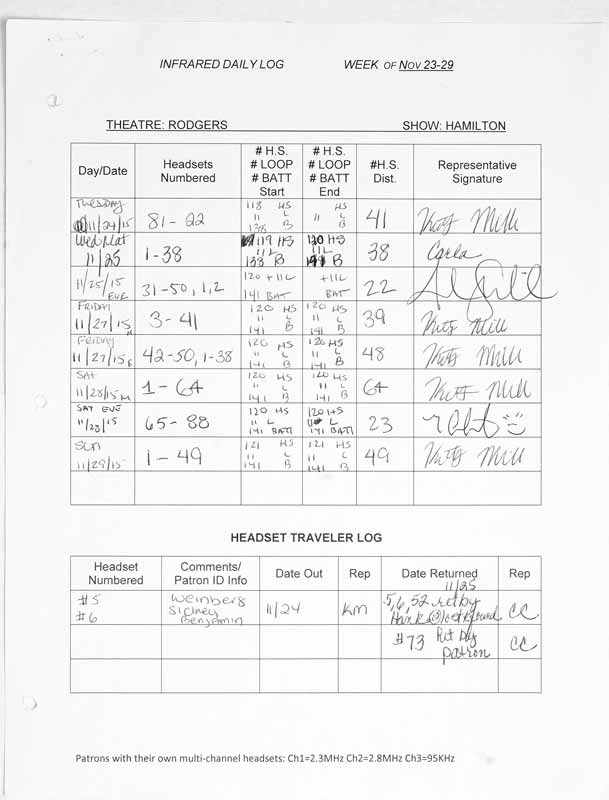 INFRARED DAILY LOG WEEK OF NOV 23-29
THEATRE: RODGERS SHOW: HAMILTON
Day/Date Headsets Numbered # H.S. # LOOP # BATT Start # H.S. # LOOP # BATT End #H.S. Dist. Representative Signature
TUESDAY 11/24/15 81-22 118 HS 11 L 138 B 11 L B 41
Wed Mat 11/25 1-38 119 HS 11 L 138 B 120 HS 11 L B 38 Carla
11/25/15 EVE 31-50, 1,2 120 + 11L 141 BAT + 11L BAT 22
FRIDAY 11/27/15 M 3-41 120 HS 11 L 141 B 120 HS 11 L 141 B 39
FRIDAY 11/27/15 E 42-50, 1-38 120 HS 11 L 141 B 120 HS 11 L 141 B 48
SAT 11/28/15 M 1-64 120 HS 11 L 141 B 120 HS 11 L 141 B 64
SAT EVE 11/28/15 65-88 120 HS 11 L 141 BATT 120 HS 11 L 141 BATT 23
SUN 11/29/15 1-49 121 HS 11 L 141 B 121 HS 11 L 141 B 49
HEADSET TRAVELER LOG
Headset Numbered Comments/ Patron ID Info Date Out Rep Date Returned Rep
#5 #6 Weinberg Sidney Benjamin 11/24 KM 11/25 5,6,52 ret by CC
#73 Ret by patron CC
Patrons with their own multi-channel headsets: Ch1=2.3MHz Ch2=2.8MHz Ch3=95KHz